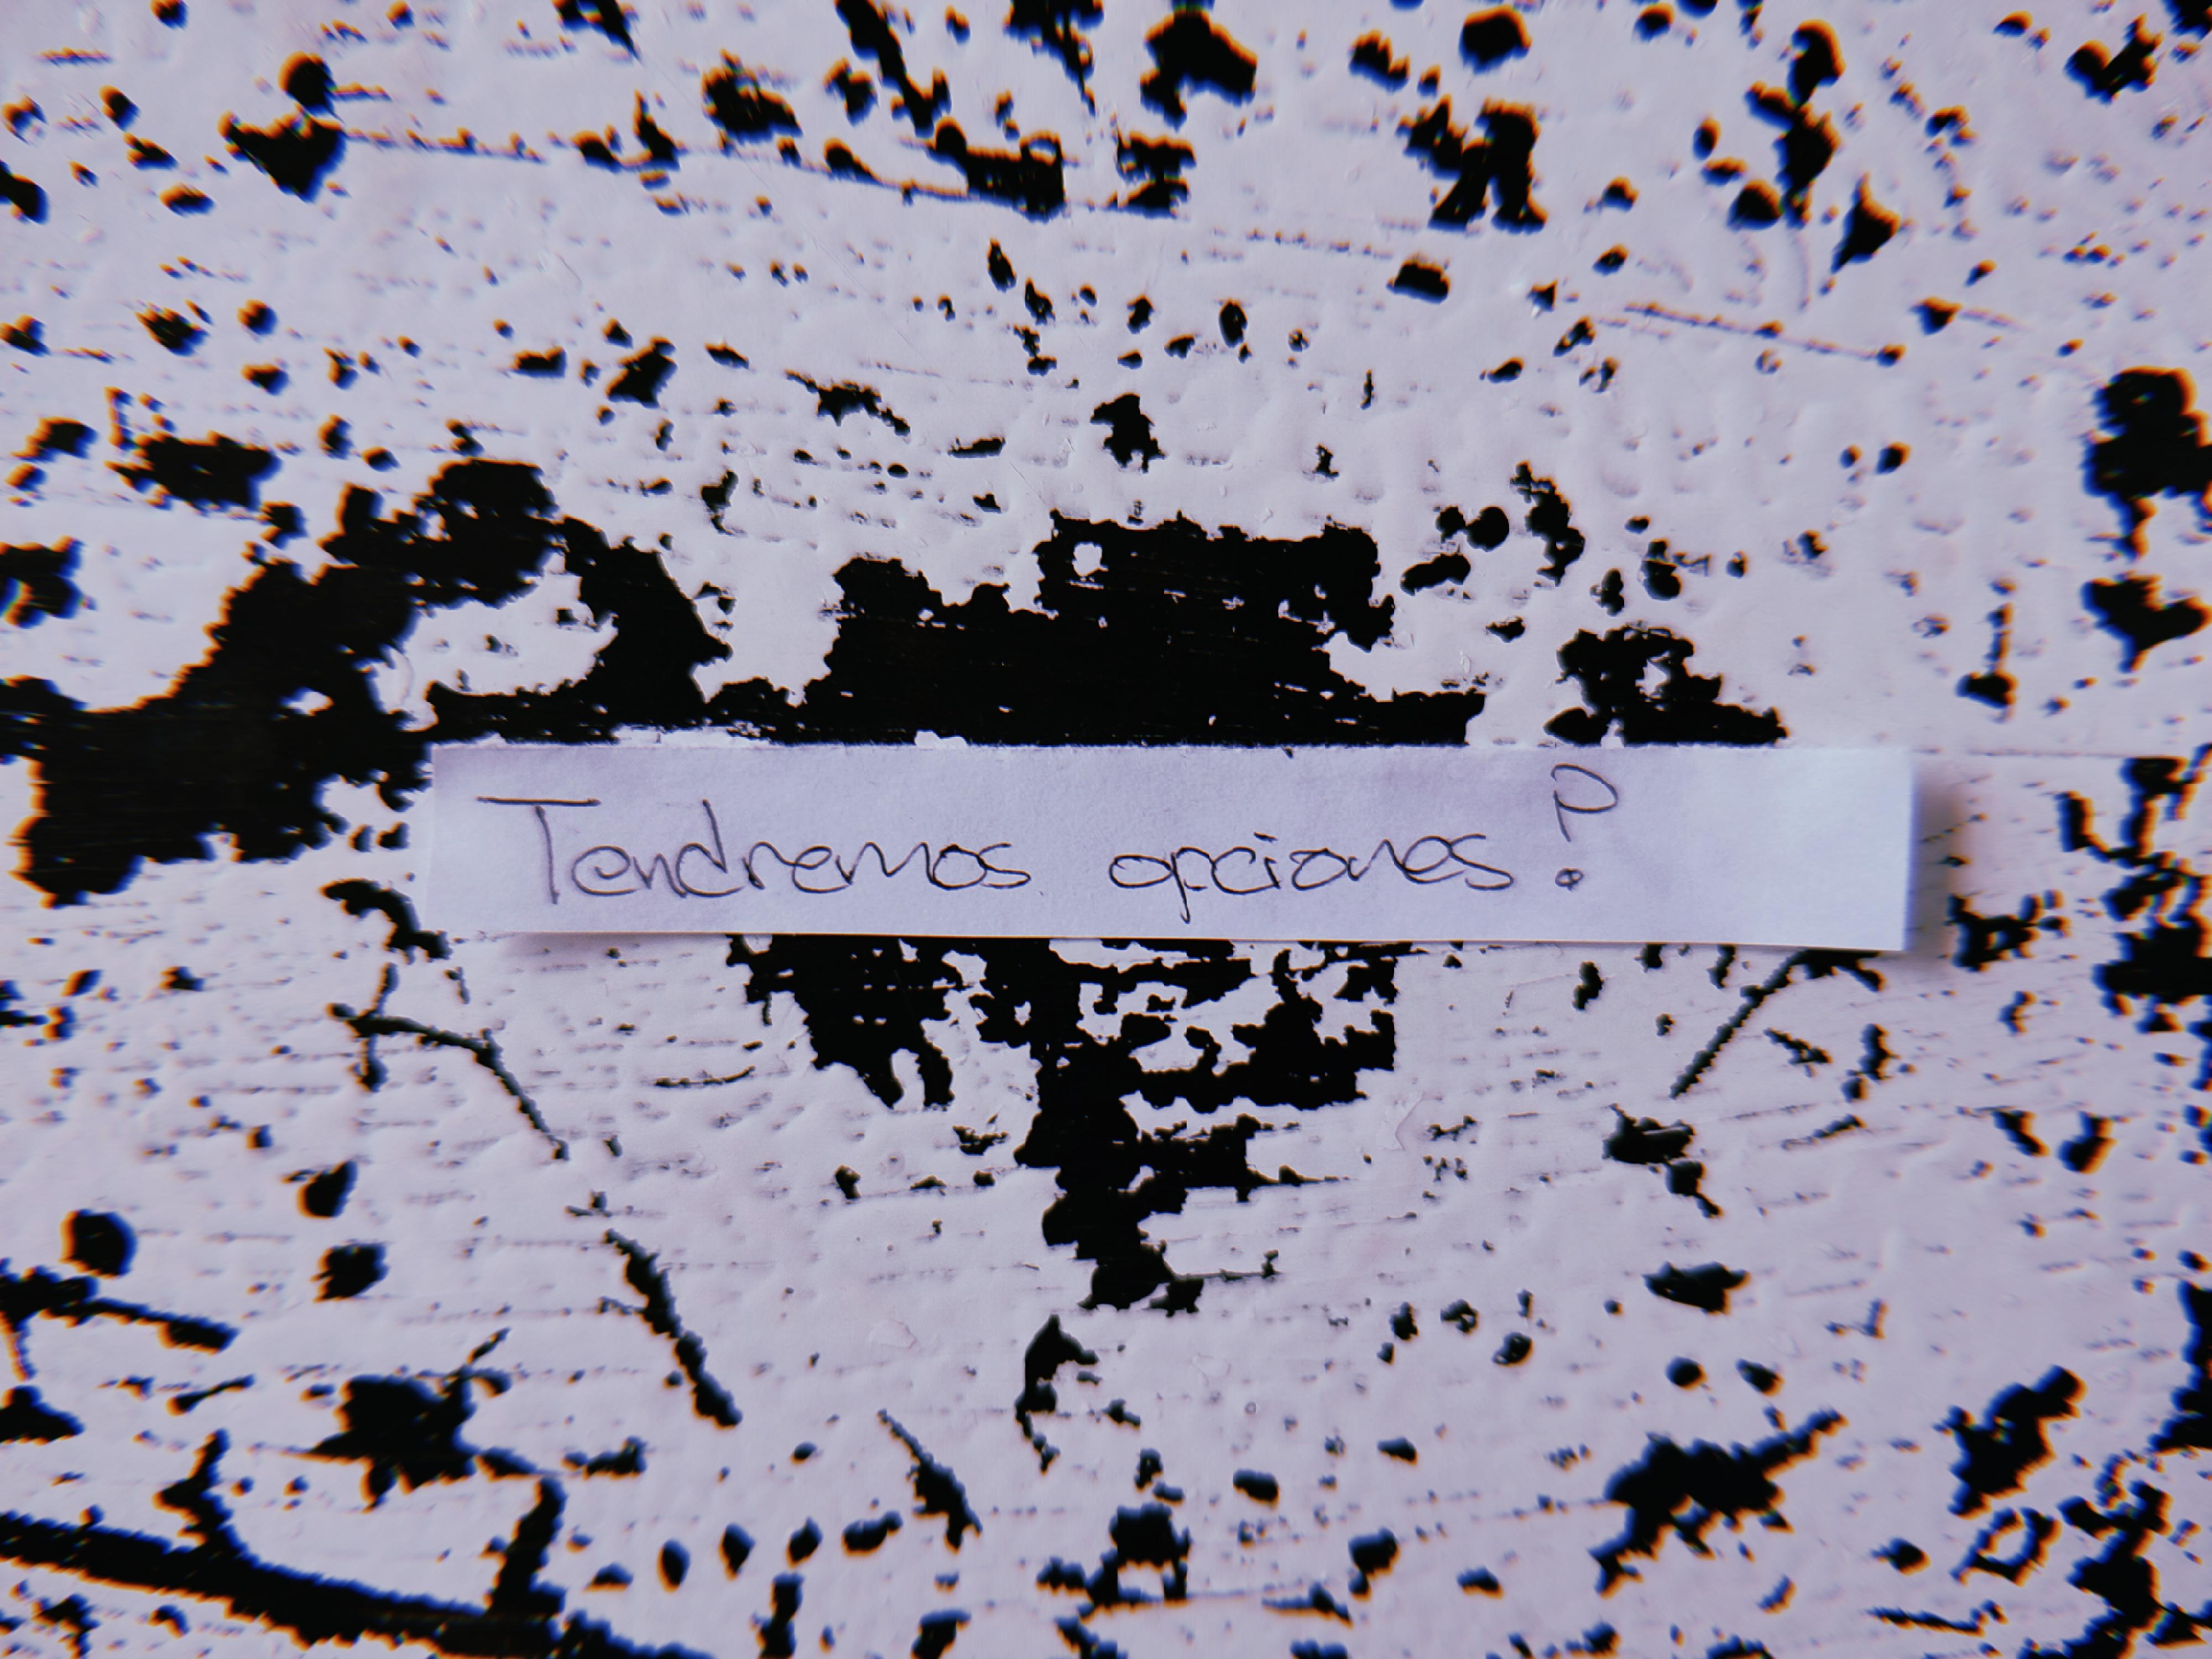 Tendremos opciones?